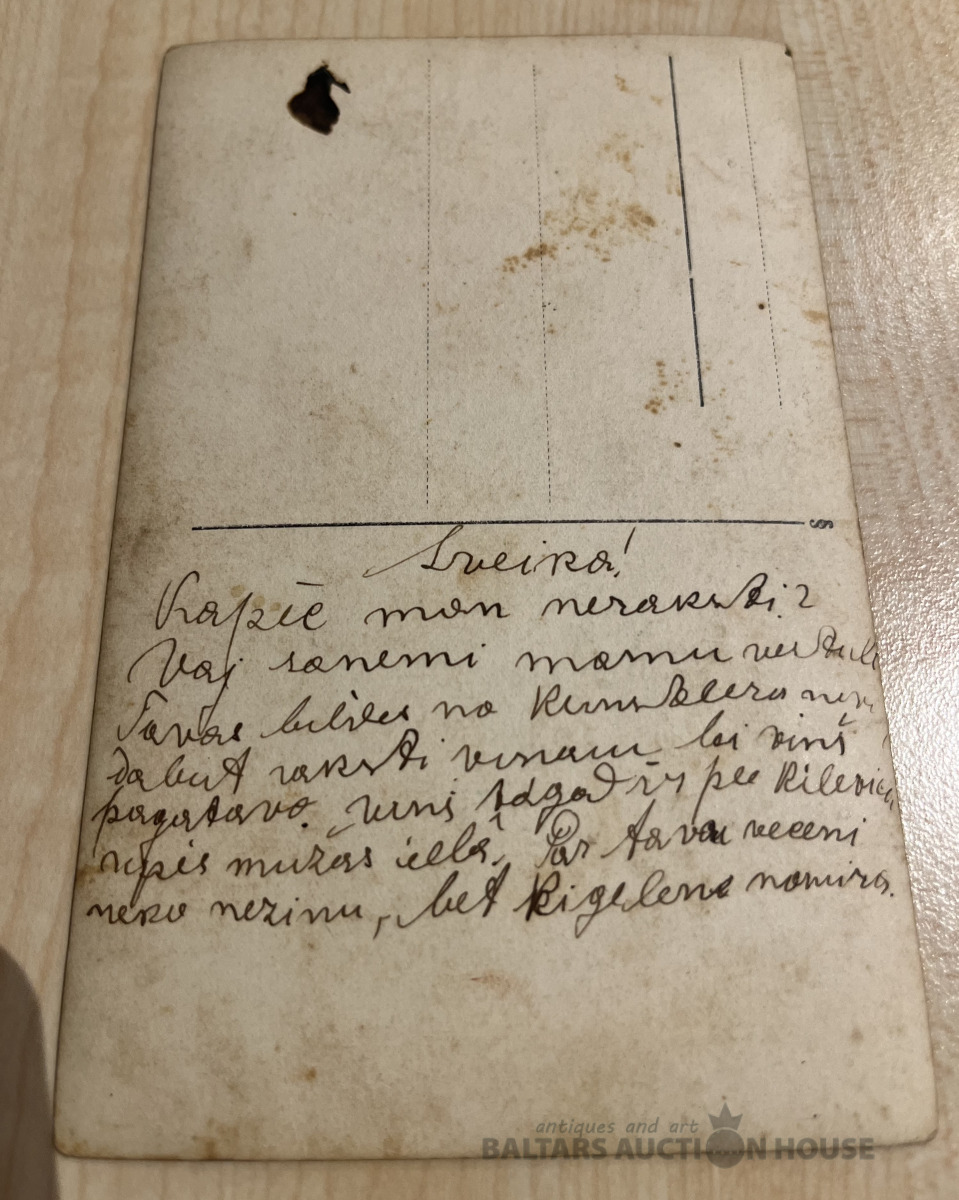 Sveika!
Kapēc man neraksti?
Vaj sanemi mamu
Tavas bildes no Kunstlera
dabut raksti vinam lai viņš
pagatavo. viņš tagad ir pee
mužas ielā, Par tavu veceni
neko nezinu, bet Rigelene nomira.
antiques and art
BALTARS AUCTION HOUSE